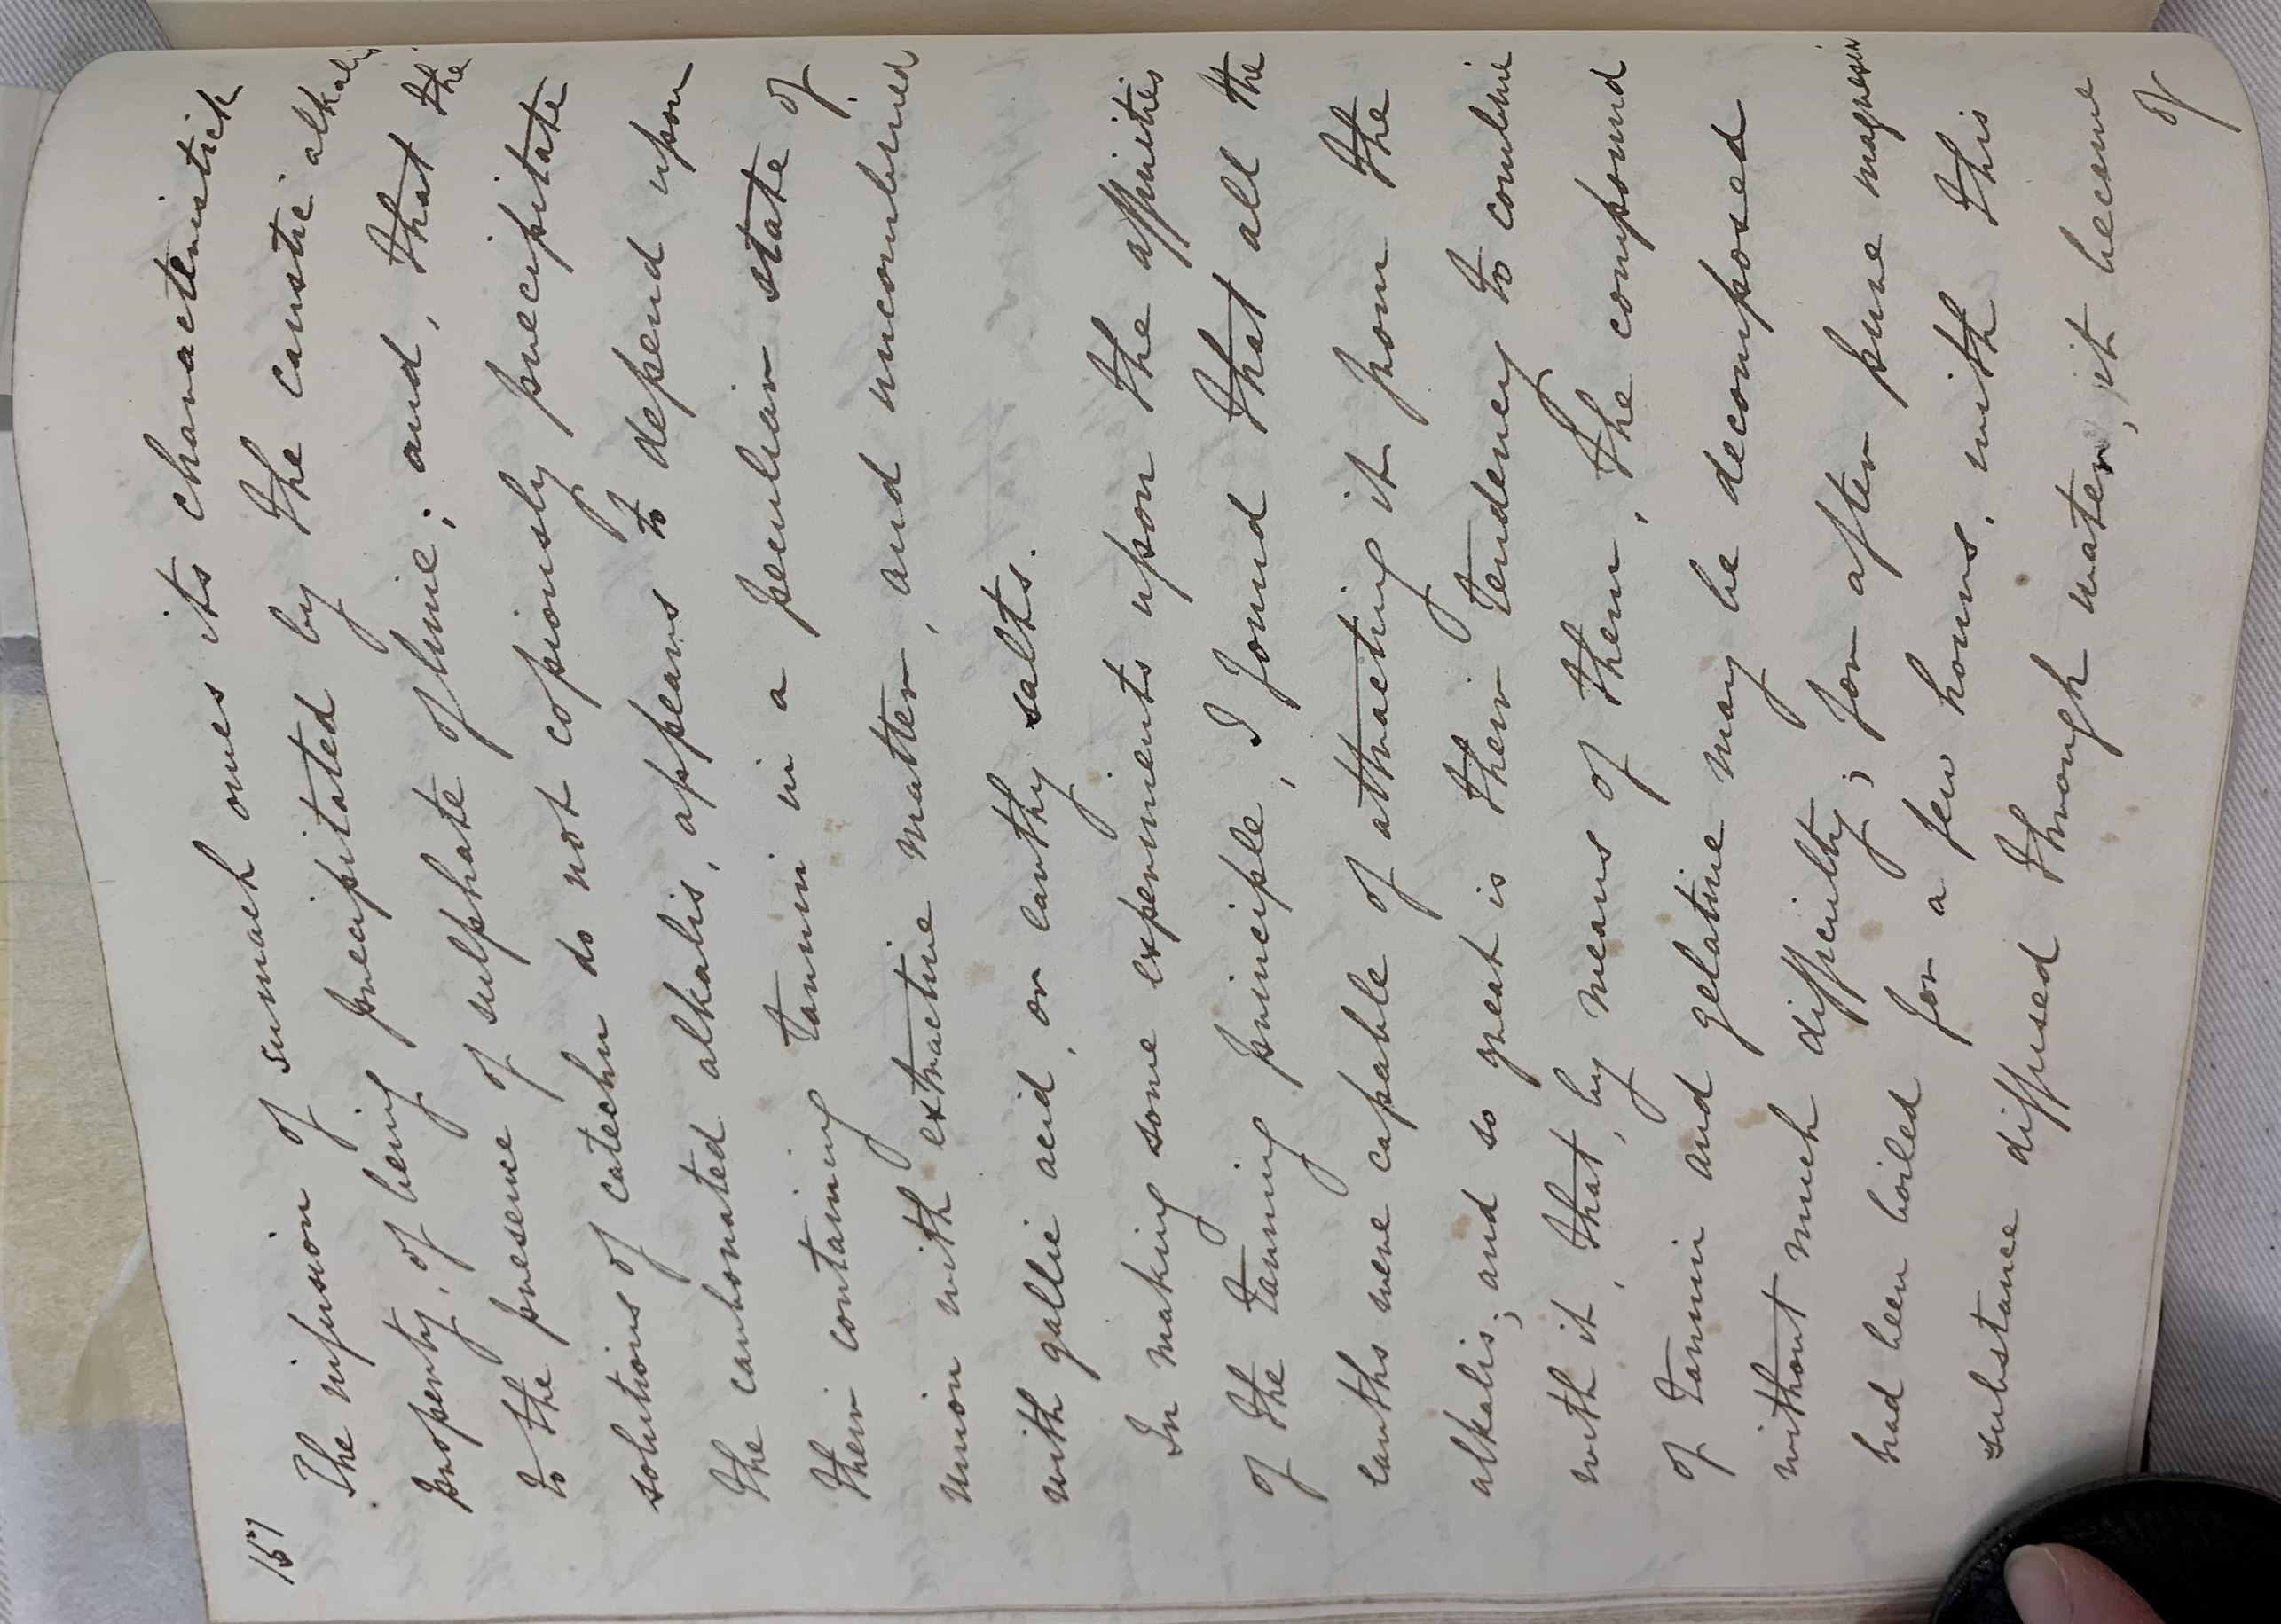 157
The infusion of sumach owes its characteristick
property, of being precipitated by the caustic alkalis
to the presence of sulphate of lime; and, that the
solutions of catechu do not copiously precipitate
the carbonated alkalis, appears to depend upon
their containing tannin in a peculiar state of
union with extractive matter, and uncombined
with gallic acid, or earthy salts.
In making some experiments upon the affinities
of the tanning principle, I found that all the
earths were capable of attracting it from the
alkalis; and so great is their tendency to combine
with it, that, by means of them, the compound
of tannin and gelatine may be decomposed
without much difficulty; for after pure magnesia
had been boiled for a few hours, with this
substance diffused through water, it became
of